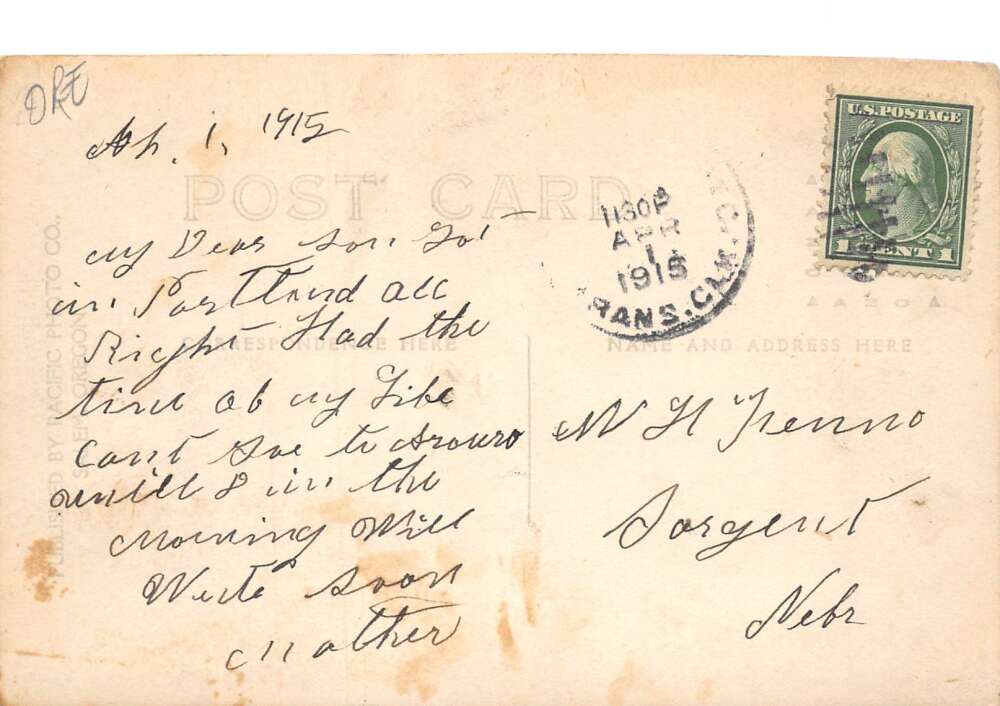 ORE
Ap. 1, 1915
POST CARD
My Dear Son Got
in Portland all
Right Had the
time of my Life
Cant Goe to Aroura
untill 8 in the
Morning Will
Write Soon
Mother
CORRESPONDENCE HERE
NAME AND ADDRESS HERE
PUBLISHED BY PACIFIC PHOTO CO.,
SALEM, OREGON
1130P
APR
1
1915
TRANS. CLK.
U.S. POSTAGE
1 CENT 1
W H Fenno
Sargent
Nebr